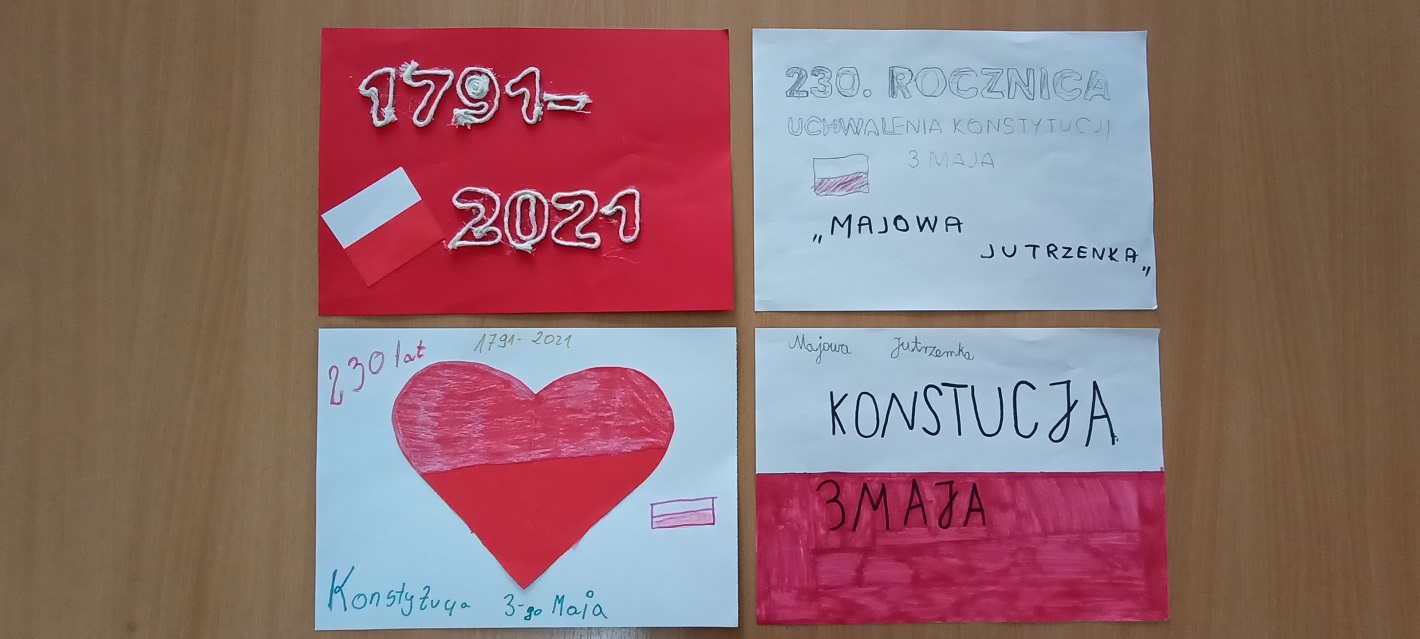 1791-
2021
230. ROCZNICA
UCHWALENIA KONSTYTUCJI
3 MAJA
„MAJOWA
JUTRZENKA„
230 lat
1791- 2021
Konstytucja 3-go Maja
Majowa Jutrzenka
KONSTUCJA
3 MAJA